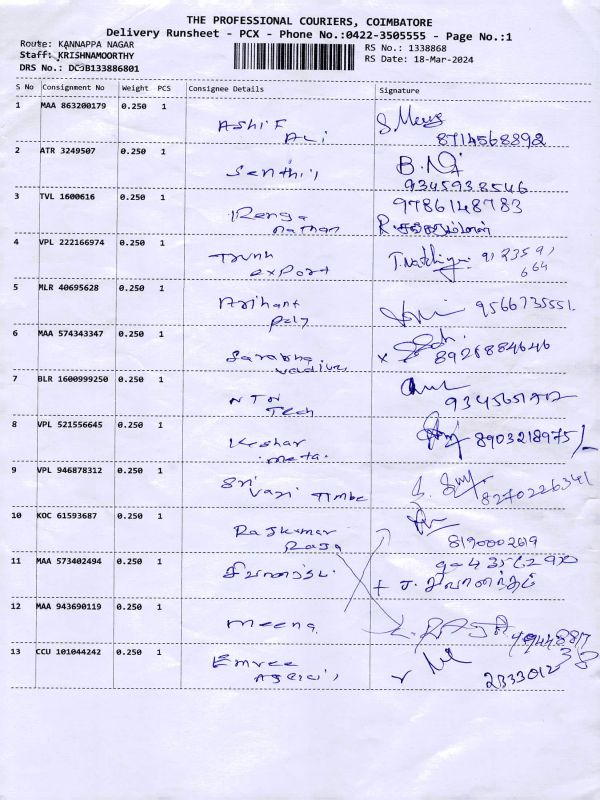 THE PROFESSIONAL COURIERS, COIMBATORE
Delivery Runsheet - PCX - Phone No.:0422-3505555 - Page No.:1
Route: KANNAPPA NAGAR
RS No.: 1338868
Staff: KRISHNAMOORTHY
RS Date: 18-Mar-2024
DRS No.: DCJB133886801
S No Consignment No Weight PCS Consignee Details Signature
1 MAA 863200179 0.250 1
Ashif
Ali
8714568892
2 ATR 3249507 0.250 1
Senthil
9345938546
3 TVL 1600616 0.250 1
9786148783
Renga
nathan
4 VPL 222166974 0.250 1
Trunk
export
91235 91
664
5 MLR 40695628 0.250 1
Arihant
poly
9566735551
6 MAA 574343347 0.250 1
Sarabha
vadivel
8926884646
7 BLR 1600999250 0.250 1
NTN
Tech
8 VPL 521556645 0.250 1
Keshar
metal
8903218975/-
9 VPL 946878312 0.250 1
Sri
Vari Timbe
8270226341
10 KOC 61593687 0.250 1
Rajkumar
Raja
8190002619
11 MAA 573402494 0.250 1
12 MAA 943690119 0.250 1
meena
13 CCU 101044242 0.250 1
Emree